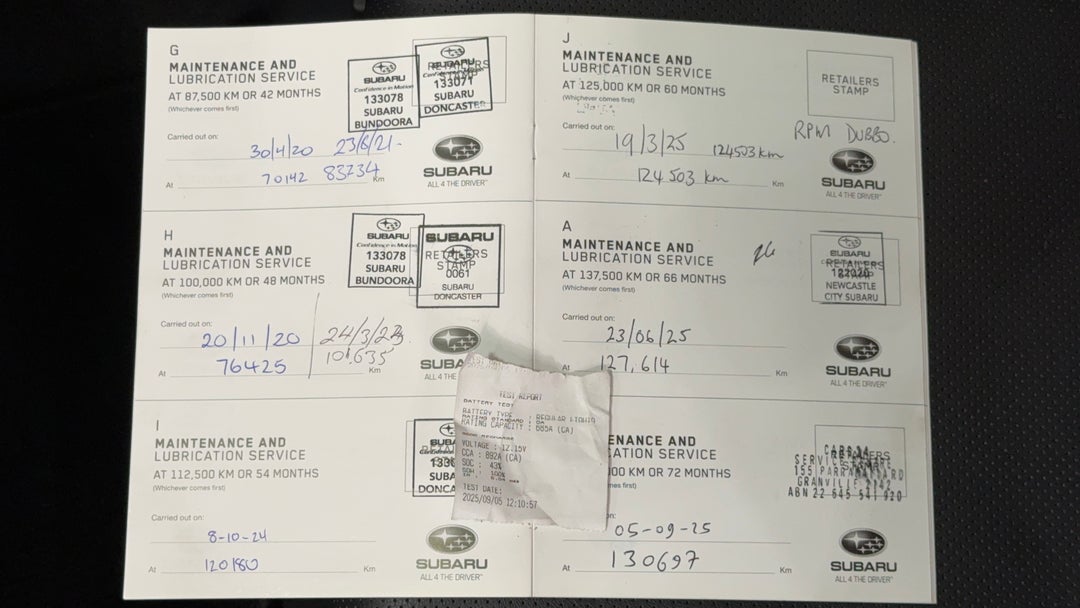 G
MAINTENANCE AND
LUBRICATION SERVICE
AT 87,500 KM OR 42 MONTHS
(Whichever comes first)
SUBARU
Confidence in Motion
133078
SUBARU
BUNDOORA
SUBARU
133071
SUBARU
DONCASTER
Carried out on:
30/4/20 23/6/21.
At 70142 83734 Km
SUBARU
ALL 4 THE DRIVER
H
MAINTENANCE AND
LUBRICATION SERVICE
AT 100,000 KM OR 48 MONTHS
(Whichever comes first)
SUBARU
Confidence in Motion
133078
SUBARU
BUNDOORA
SUBARU
RETAILERS
STAMP
0061
SUBARU
DONCASTER
Carried out on:
20/11/20 24/3/23
At 76425 101,635 Km
SUBA
ALL 4 TH
I
MAINTENANCE AND
LUBRICATION SERVICE
AT 112,500 KM OR 54 MONTHS
(Whichever comes first)
SUBA
DONCA
Carried out on:
8-10-24
At 120180 Km
SUBARU
ALL 4 THE DRIVER
TEST REPORT
BATTERY TEST
BATTERY TYPE : REGULAR LIQUID
RATING CAPACITY : 685A (CA)
VOLTAGE : 12.15V
CCA : 892A (CA)
SOC : 43%
TEST DATE:
2025/09/05 12:10:57
J
MAINTENANCE AND
LUBRICATION SERVICE
AT 125,000 KM OR 60 MONTHS
(Whichever comes first)
RETAILERS
STAMP
RPM DUBBO
Carried out on:
19/3/25 124503 km
At 124503 km Km
SUBARU
ALL 4 THE DRIVER
A
MAINTENANCE AND
LUBRICATION SERVICE
AT 137,500 KM OR 66 MONTHS
(Whichever comes first)
SUBARU
RETAILERS
122020
NEWCASTLE
CITY SUBARU
Carried out on:
23/06/25
At 127,614 Km
SUBARU
ALL 4 THE DRIVER
ENANCE AND
CATION SERVICE
00 KM OR 72 MONTHS
comes first)
GRANVILLE 2142
ABN 22 645 541 920
on:
05-09-25
At 130697 Km
SUBARU
ALL 4 THE DRIVER